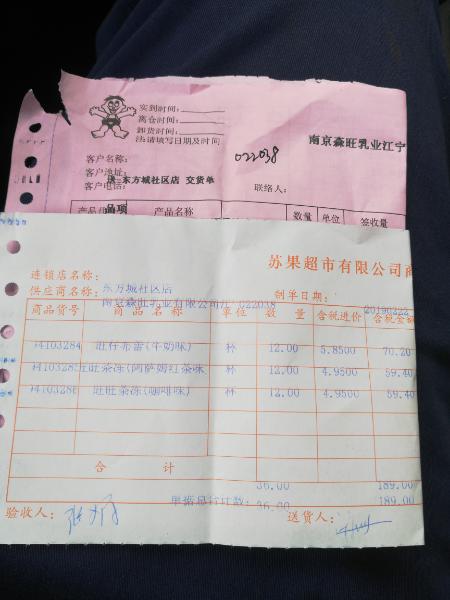 实到时间:
离仓时间:
卸货时间:
请填写日期及时间
南京森旺乳业江宁
客户名称:
022038
客户地址:
东方城社区店 交货单
客户电话:
联络人:
品项 产品名称 数量 单位 签收量
苏果超市有限公司商
连锁店名称: 东方城社区店
供应商名称: 南京森旺乳业有限公司 022038 制单日期: 20190222
商品货号 商品名称 单位 数量 含税进价 含税金额
旺仔布蕾(牛奶味) 杯 12.00 5.8500 70.20
旺旺茶冻(阿萨姆红茶味 杯 12.00 4.9500 59.40
旺旺茶冻(咖啡味) 杯 12.00 4.9500 59.40
合计
36.00 189.00
单据总行计数: 36.00 189.00
验收人: 送货人: